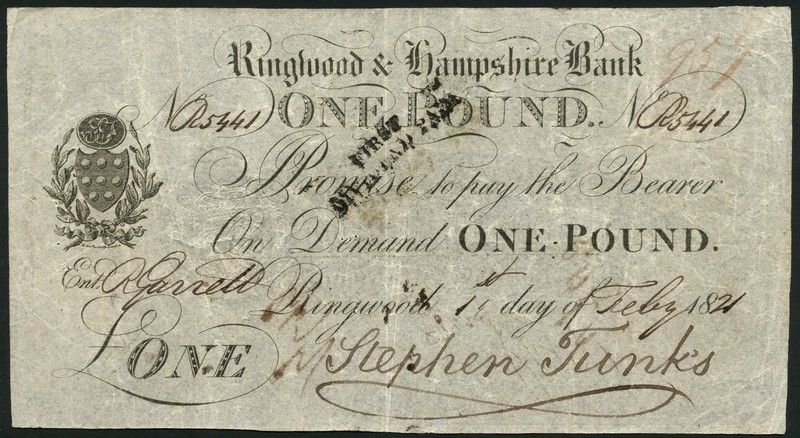 Ringwood & Hampshire Bank
957
No R5441 ONE POUND. No R5441
FIRST
DIVIDEND PAID
I Promise to pay the Bearer
On Demand ONE POUND.
Entd. R Garrett Ringwood 1st day of Feby 1821
£ONE Stephen Tunks